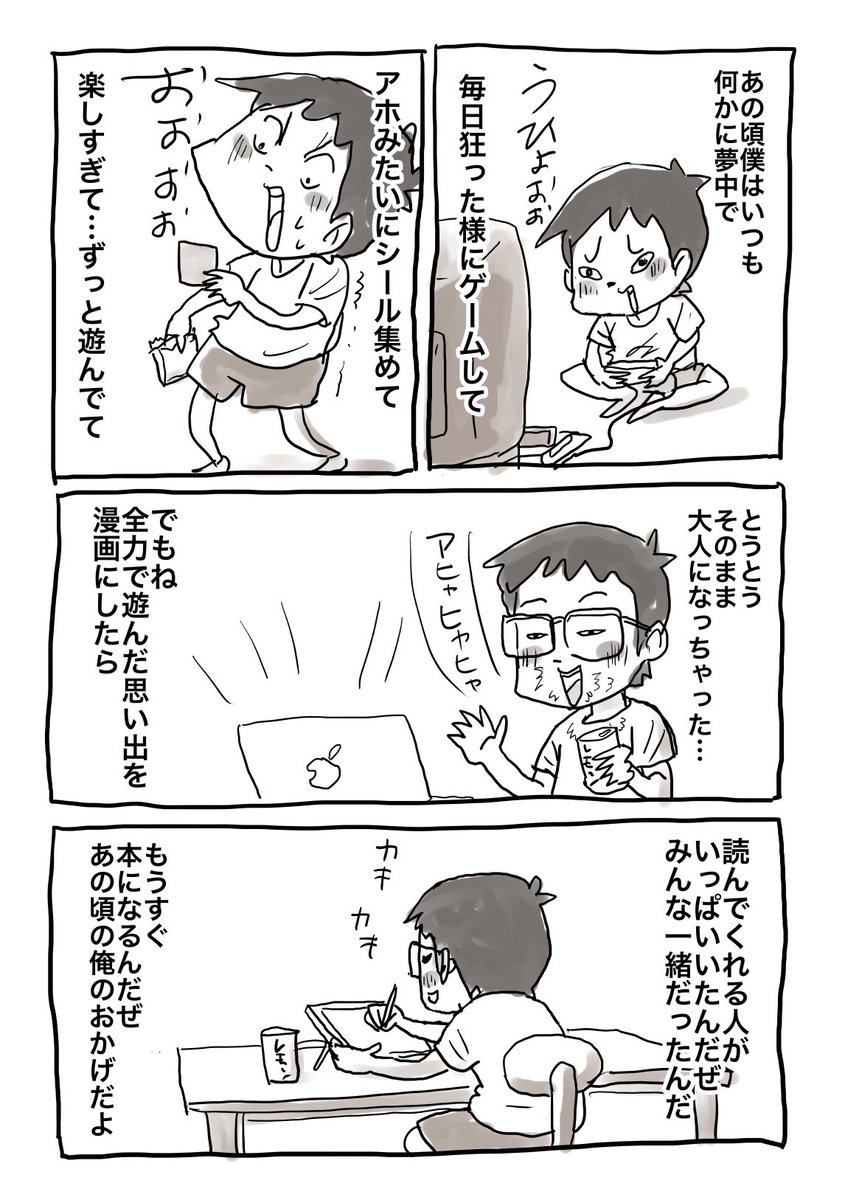 あの頃僕はいつも
何かに夢中で
うひょおぉ
毎日狂った様にゲームして
アホみたいにシール集めて
おおおぉ
楽しすぎて…ずっと遊んでて
とうとう
そのまま
大人になっちゃった…
アヒャヒャヒャ
レモン
でもね
全力で遊んだ思い出を
漫画にしたら
読んでくれる人が
いっぱいいたんだぜ
みんな一緒だったんだ
カキ
カキ
レモン
もうすぐ
本になるんだぜ
あの頃の俺のおかげだよ